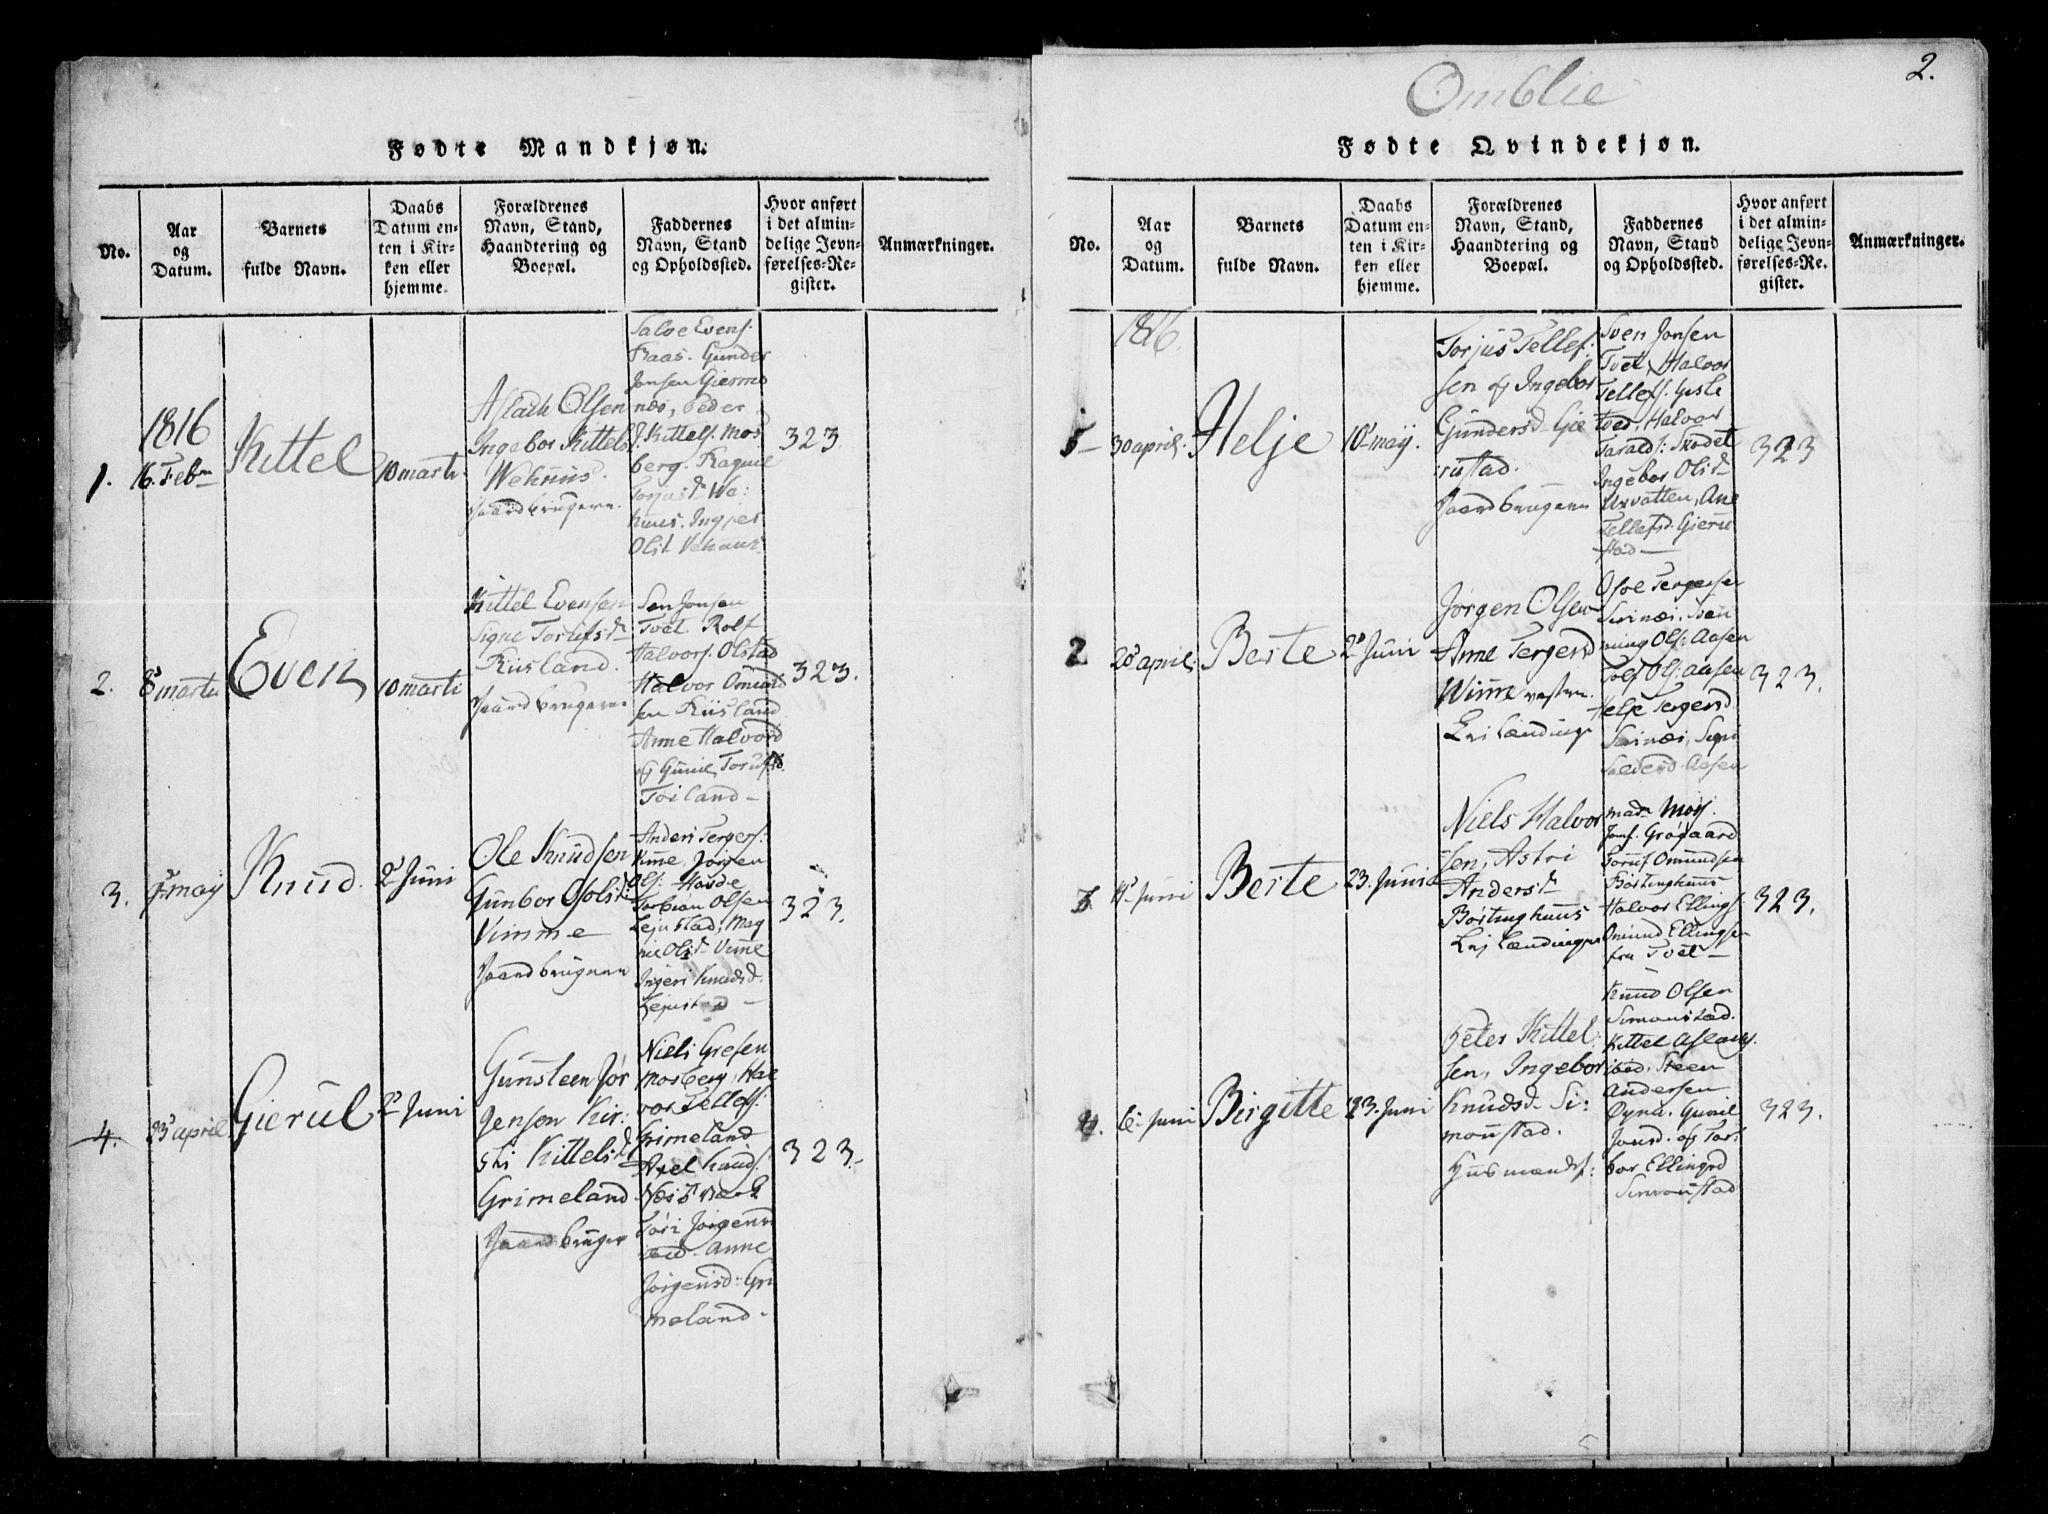 Fødte Mandkjøn.
No.
Aar
og
Datum.
Barnets
fulde Navn.
Daabs
Datum en-
ten i Kir-
ken eller
hjemme.
Forældrenes
Navn, Stand,
Haandtering og
Boepæl.
Faddernes
Navn, Stand
og Opholdssted.
Hvor anført
i det almin-
delige Jevn-
førelses-Re-
gister.
Anmærkninger.
1.
1816
16. Febr
Kittel
10 marti
Aslach Olsen
Ingebor Kittelsd.
Wehuus.
Gaardbrugere.
Salve Evens.
Raas. Gunder
Jonsen Giermo
næs, Peder
Kittels. Mos
berg. Ragnil
Torjusd. We:
huus. Ingjer
Olsd. Vehuus.
323
2.
8 marti
Even
10 marti
Kittel Evensen
Signe Torufsd
Riisland.
Gaardbrugere
Sven Jonsen
Tvet. Rolf
Halvors. Olstad
Halvor Omund
sen Riisland
Anne Halvord
og Gunil Torufsd.
Toiland -
323.
3.
may
Knud
2 Juni
Ole Knudsen
Gunbor Osolsd.
Vimme
Gaardbrugere
Anders Tergers:
Vime, Jørgen
Ols: Hovde
Torbian Olsen
Lejustad, Mag
nil Olsd. Vime
Ingeri Knudsd.
Lejustad -
323.
4.
23 april
Gierul
2 Juni
Gunsteen Jør
gensen Kir:
sti Kittelsd
Grimeland
Gaardbruger
Niels Gresen
Mosberg, Hal
vor Tellefs:
Grimeland
Axel Knuds.
Næs Værk
Tori Jørgensd
Anne
Jørgensd: Gri
meland.
323.
2.
Omblie
Fødte Qvindekjøn.
No.
Aar
og
Datum.
Barnets
fulde Navn.
Daabs
Datum en-
ten i Kir-
ken eller
hjemme.
Forældrenes
Navn, Stand,
Haandtering og
Boepæl.
Faddernes
Navn, Stand
og Opholdssted.
Hvor anført
i det almin-
delige Jevn-
førelses-Re-
gister.
Anmærkninger.
1816.
30 april.
Helje
10 may.
Torjus Tellef:
sen og Ingebor
Gundersd Gie
rustad.
Gaardbrugere
Sven Jonsen
Tvet, Halvor
Tellefs.
tved, Halvor
Taralds: Skodet
Ingebor Olsd
Uxvatten, Ane
Tellefsd. Gieru
stad -
323
2
28 april.
Berte
2 Juni
Jørgen Olsen
Anne Tergersd
Wimme vestre.
Lejlændinge
Osol Tergersen
Svinæs, Sven
ning Ols: Aasen
Rolf Ols: Aasen
Helje Tergersd.
Svinæs, Signe
Aasen
323.
3.
Juni
Berte
23. Juni
Niels Halvor
sen, Astri
Andersd
Børtinghuus
Lejlændinge
mad. Moss.
Jomf. Grøgaard
Toruf Omundsen
Børtinghuus
Halvor Ellings:
Omund Ellingsen
fra Tvet -
323.
4.
6 Juni
Birgitte
23. Juni
Peter Kittel:
sen, Ingebor
Knudsd. Si:
monstad.
Huusmandsf:
Knud Olsen
Simonstad.
Kittel Aslaks.
ibid. Steen
Andersen
Dyna. Gunil
Jonsd. og Tor:
bor Ellingsd
Simonstad
323.